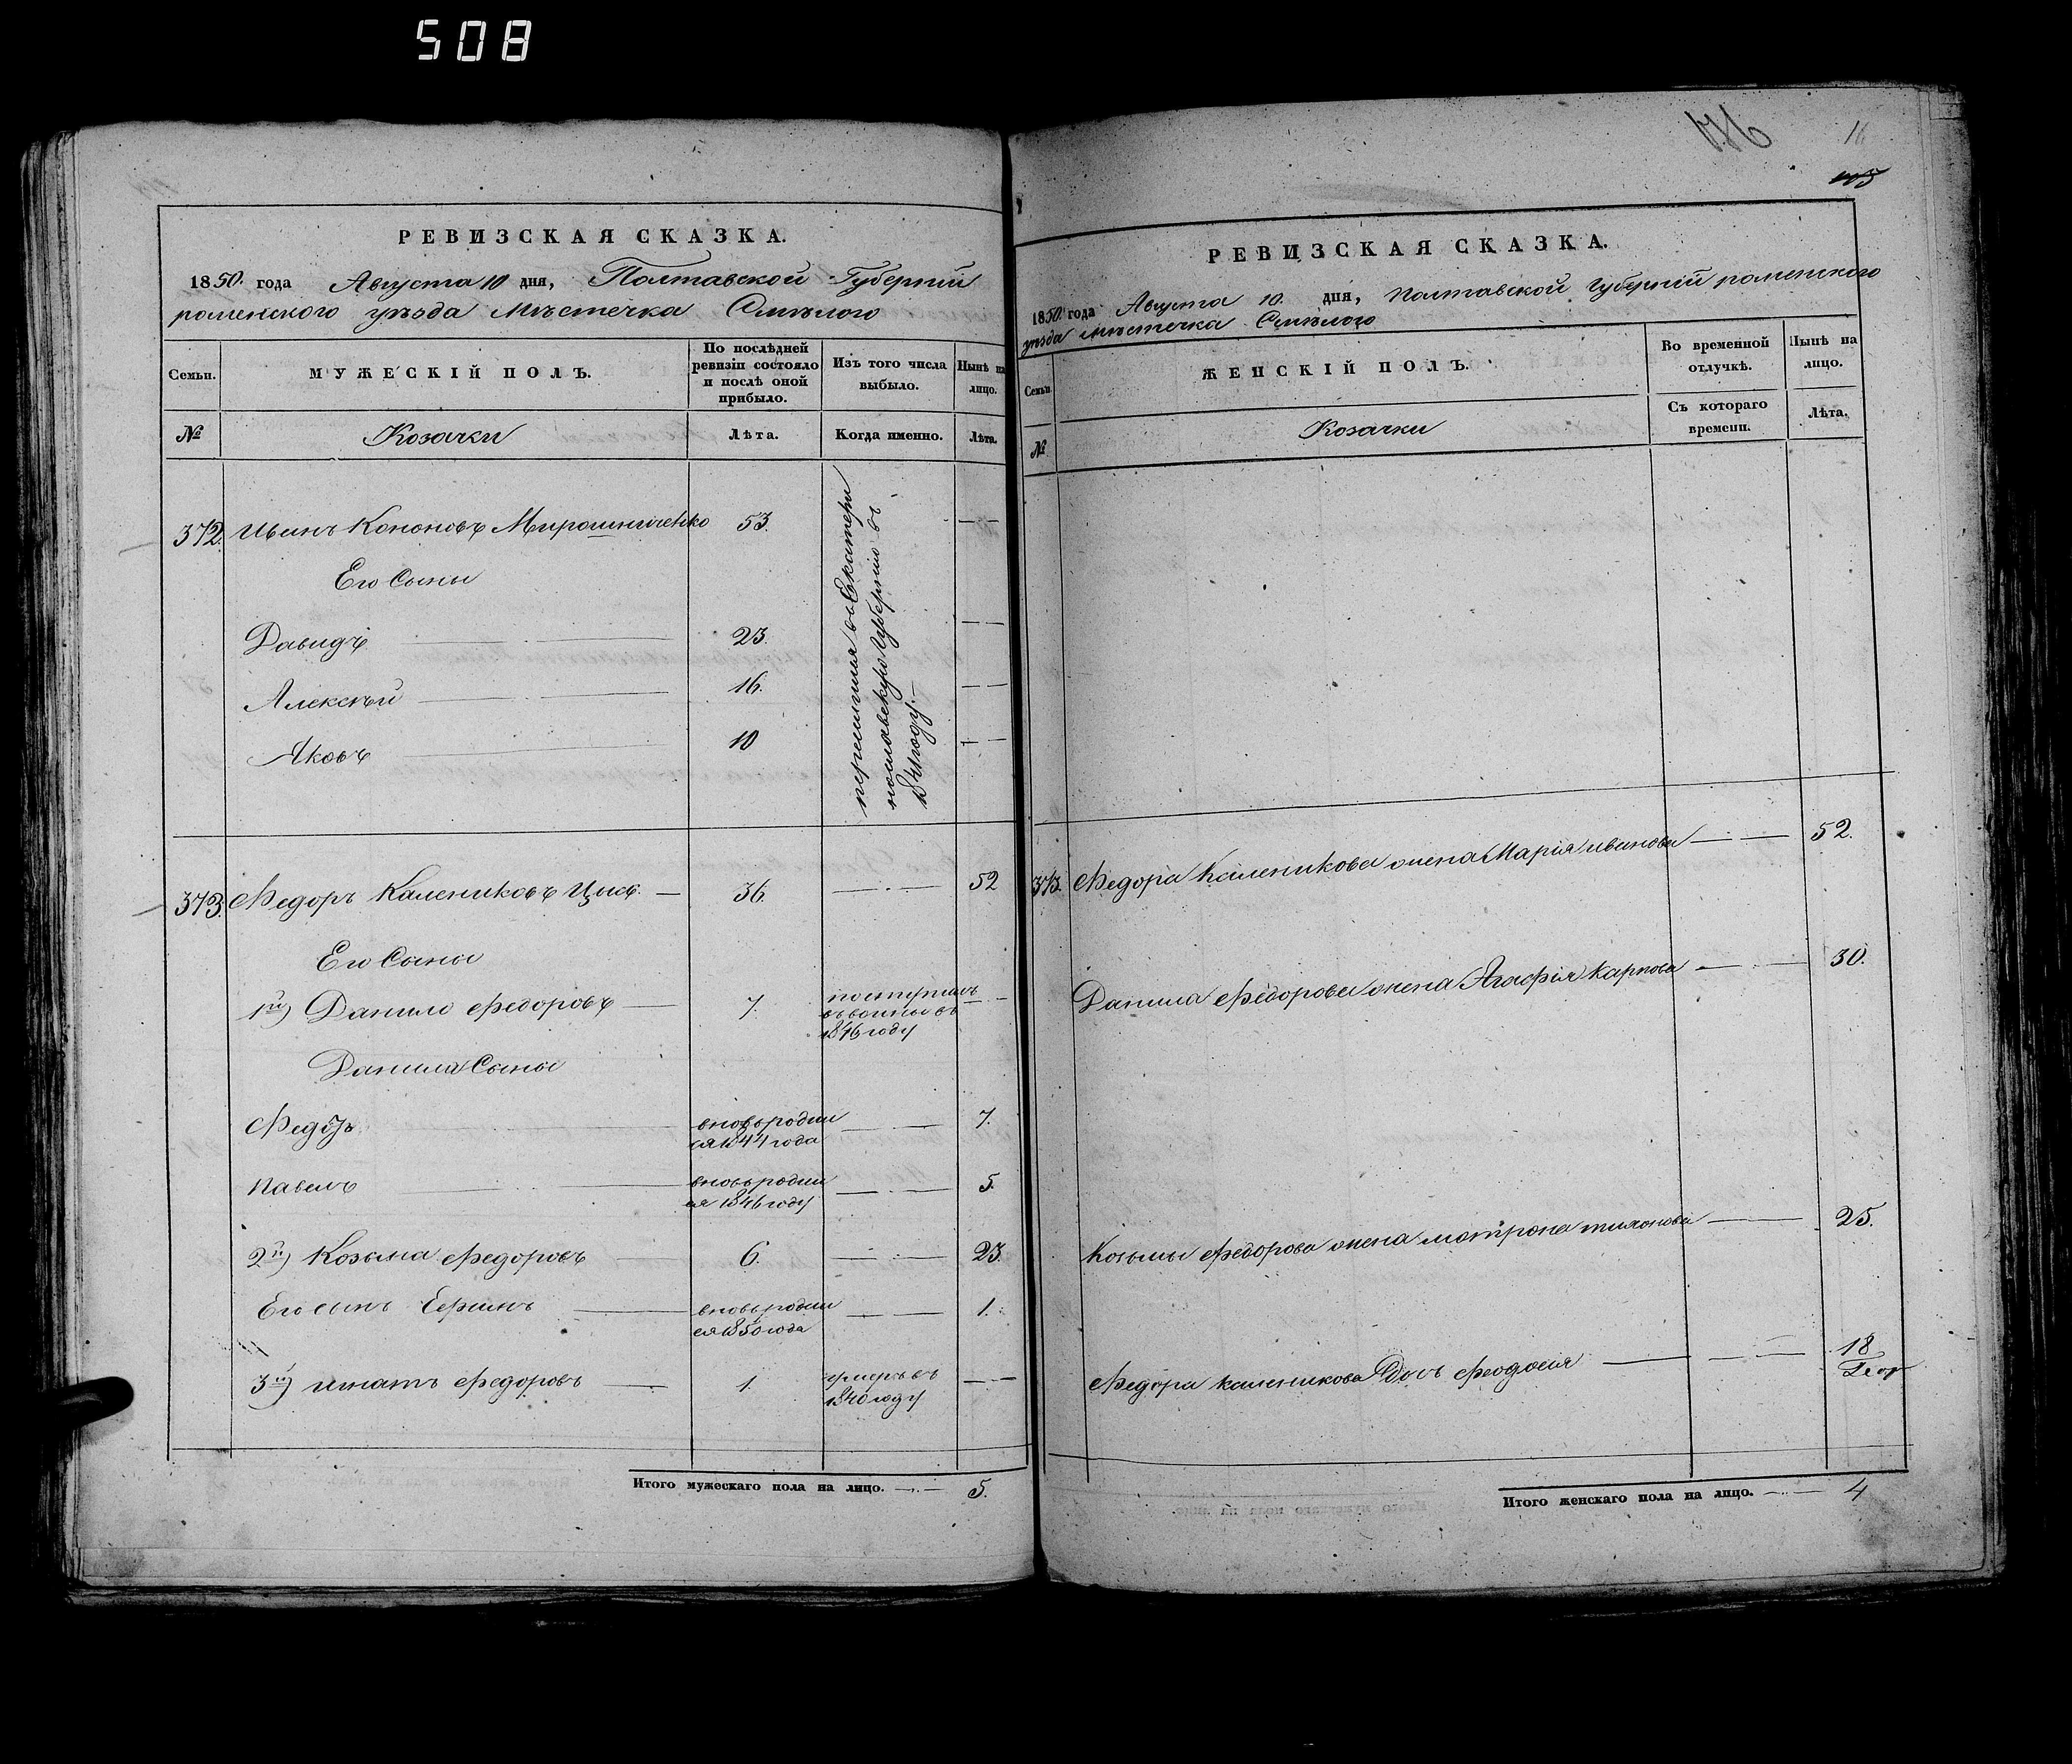 508
РЕВИЗСКАЯ СКАЗКА.
1850. года Августа 10 дня, Полтавской Губерніи
роменского уѣзда Мѣстечка Смѣлого
Семьи.
МУЖЕСКІЙ ПОЛЪ.
По послѣдней ревизіи состояло и послѣ оной прибыло.
Изъ того числа выбыло.
Нынѣ на лицо.
№
Козачки
Лѣта.
Когда именно.
Лѣта.
372. Иванъ Кононовъ Мирошниченко 53.
переселился въ Екатери
нославскую Губернію въ
1841 году. —
Его Сыны
Давидъ 23.
Алексѣй 16.
Яковъ 10
373. Федоръ Калениковъ 36. 52
Его Сыны
1й) Данило Федоровъ 7. поступилъ
въ 1846 году
Данила Сыны
Федоръ вновь родил
ся 1844 года 7.
Павелъ вновь родил
ся 1846 году 5.
2й) Козьма Федоровъ 6. 23.
Его сынъ вновь родил
ся 1850 года 1.
3й) Игнатъ Федоровъ 1. умеръ въ
1840 году
Итого мужескаго пола на лицо. 5.
186
16
РЕВИЗСКАЯ СКАЗКА.
1850. года Августа 10. дня, Полтавской Губерніи роменского
уѣзда Мѣстечка Смѣлого
Семьи
ЖЕНСКІЙ ПОЛЪ.
Во временной отлучкѣ.
Нынѣ на лицо.
№
Козачки
Съ котораго времени.
Лѣта.
373. Федора Каленикова жена Марія иванова 52.
Данила Федорова жена Агафія Карпова 30.
Козьмы Федорова жена мотрона тихонова 25.
Федора каленикова Дочь Феодосія 18
Итого женскаго пола на лицо. 4